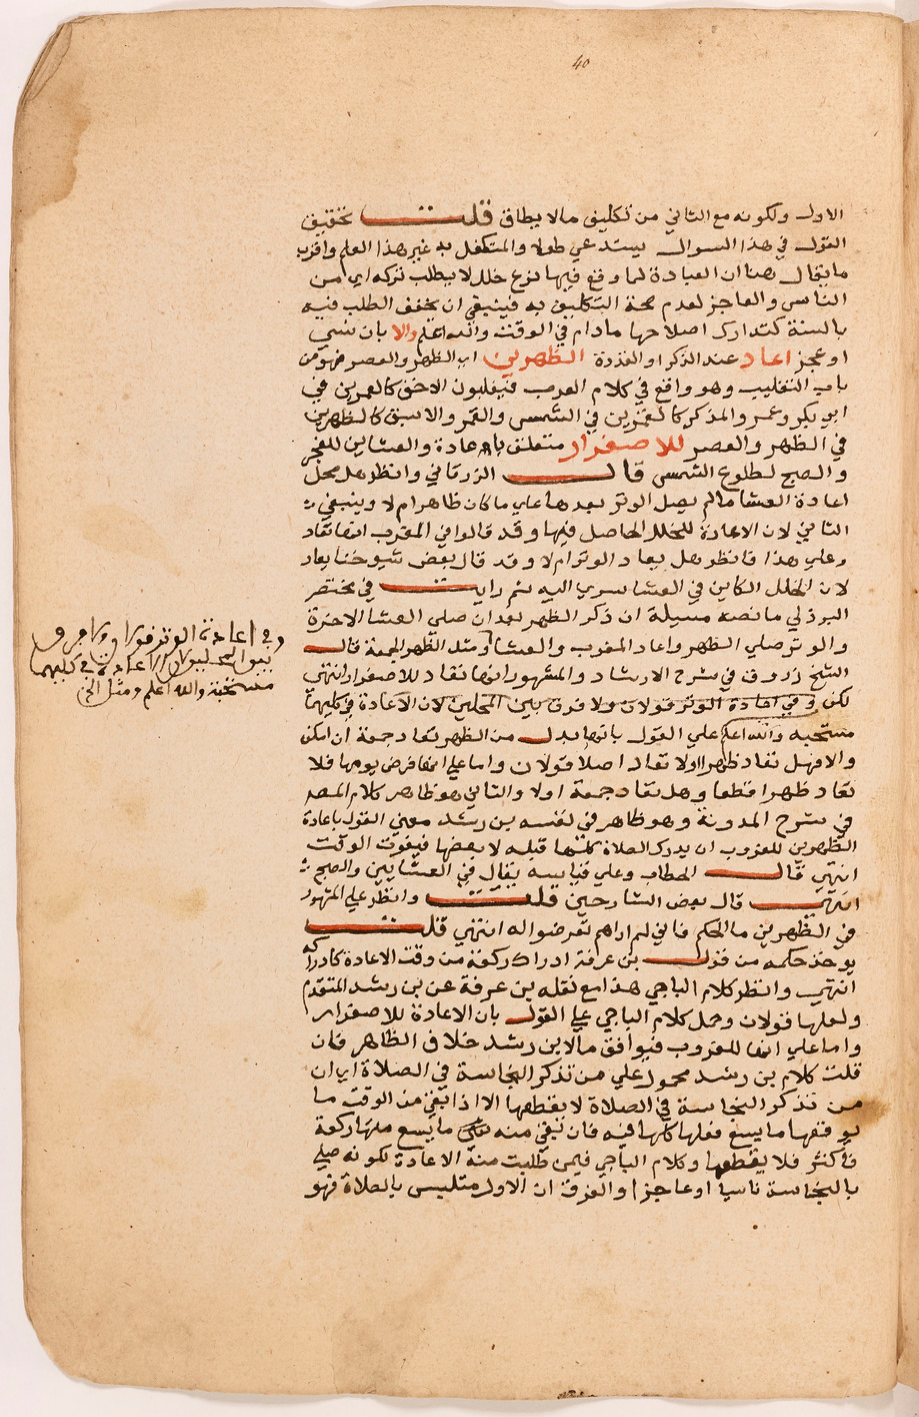 40
الاول ولكونه مع الثاني من تكليف مالا يطاق قلت تحقيق
القول في هذا السوال يستدعي طولا والمتكفل به غير هذا العلم واقرب
ما يقال هنا ان العبادة لما وقع فيها نوع خلل لا يطلب تركه اي من
الناسي والعاجز لعدم صحة التكليف به فينبغي ان يخفف الطلب فيه
بالسنة كتدارك اصلاحها مادام في الوقت والله اعلم والا بان نسي
او عجز اعاد عند الذكر او القدرة الظهرين اي الظهر والعصر فهو من
باب التغليب وهو واقع في كلام العرب فيغلبون الاخف كالعمرين في
ابي بكر وعمر والمذكر كالقمرين في الشمس والقمر والاسبق كالظهرين
في الظهر والعصر للاصفرار متعلق باعادة والعشاين للفجر
والصبح لطلوع الشمس قال الزرقاني وانظر هل محل
اعادة العشا مالم يصل الوتر بعدها علي ما كان ظاهرا ام لا وينبغي
الثاني لان الاعادة للخلل الحاصل فيها وقد قالوا في المغرب انها تعاد
وعلي هذا فانظر هل يعاد الوتر ام لا وقد قال بعض شيوخنا يعاد
لان الخلل الكاين في العشا سري اليه ثم رايت في مختصر
البرزلي ما نصه مسيلة ان ذكر الظهر بعد ان صلي العشا الاخرة
والوتر صلي الظهر واعاد المغرب والعشا ومثل الظهر الجمعة قال
الشيخ زروق في شرح الارشاد والمشهور انها تعاد للاصفرار انتهي
لكن وفي اعادة الوتر قولان ولا فرق بين المحلين لان الاعادة في كليهما
مستحبه والله اعلم علي القول بانها بدل من الظهر تعاد جمعة ان امكن
والا فهل تعاد ظهرا اولا تعاد اصلا قولان واما علي انها فرض يومها فلا
تعاد ظهرا قطعا وهل تعاد جمعة اولا والثاني هو ظاهر كلام المصـ
في شرح المدونة وهو ظاهر في نفسه بن رشد معني القول باعادة
الظهرين للغروب ان يدرك الصلاة كلها قبله لا بعضها فيفوت الوقت
انتهي قال الحطاب وعلي قياسه يقال في العشايين والصبح
انتهي قال بعض الشارحين قلت وانظر علي المشهور
في الظهرين ما الحكم فاني لم ارهم تعرضوا له انتهي قلت
يوخذ حكمه من قول بن عرفة ادراك ركعة من وقت الاعادة كادراكه
انتهي وانظر كلام الباجي هذا مع نقله بن عرفة عن بن رشد المتقدم
ولعلها قولان وحمل كلام الباجي علي القول بان الاعادة للاصفرار
واما علي انها للغروب فيوافق مالابن رشد خلاف الظاهر فان
قلت كلام بن رشد محمول علي من تذكر النجاسة في الصلاة اي ان
من تذكر النجاسة في الصلاة لا يقطعها الا اذا بقي من الوقت ما
يوقعها ما يسع فعلها كلها فيه فان بقي منه ما يسع منها ركعة
فاكثر فلا يقطعها وكلام الباجي فيمن طلبت منه الاعادة لكونه صلي
بالنجاسة ناسيا او عاجزا والفرق ان الاول متلبس بالصلاة فهو
وفي اعادة الوتر قولان ولا فرق
بين المحلين لان الاعادة في كليهما
مستحبة والله اعلم ومثل الخ